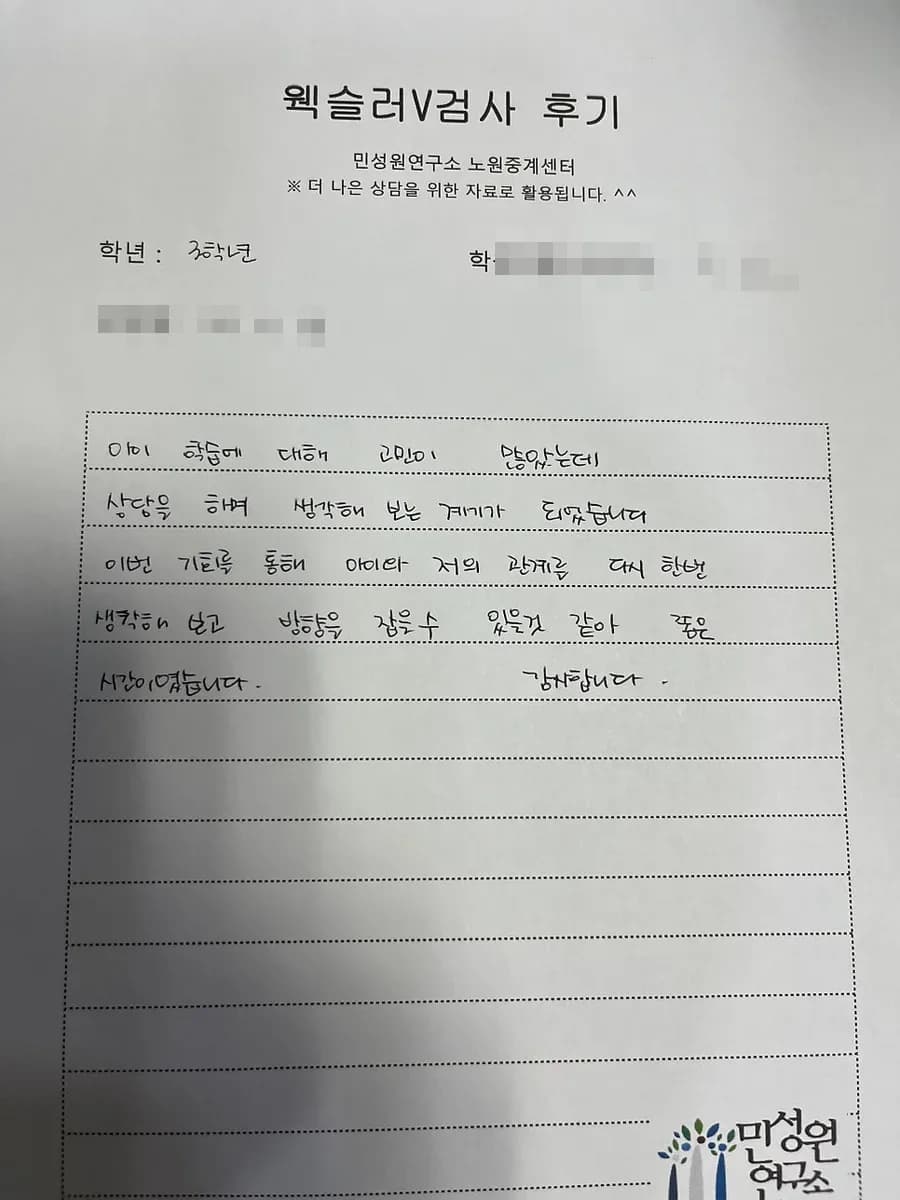 웩슬러V검사 후기
민성원연구소 노원중계센터
※ 더 나은 상담을 위한 자료로 활용됩니다. ^^
학년 : 3학년
학
아이 학습에 대해 고민이 많았는데
상담을 하며 생각해 보는 계기가 되었습니다
이번 기회를 통해 아이와 저의 관계를 다시 한번
생각해 보고 방향을 잡을수 있을것 같아 좋은
시간이였습니다. 감사합니다.
민성원
연구소